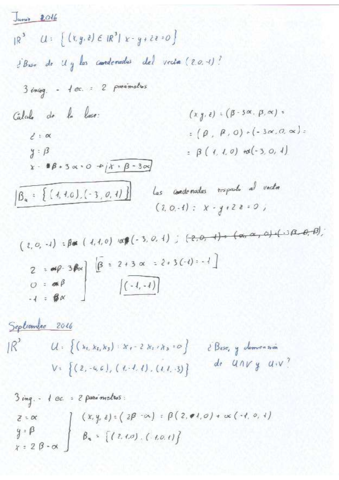 Junio 2016
IR³ U = {(x,y,z) ∈ IR³ | x-y+3z=0}
¿Base de U y las coordenadas del vector (2,0,-1)?
3 incog. - 1 ec. = 2 parámetros
Cálculo de la base:
z = α
y = β
x - β + 3α = 0 → x = β - 3α
(x,y,z) = (β-3α, β, α) =
= (β, β, 0) + (-3α, 0, α) =
= β(1,1,0) + α(-3,0,1)
Bᵤ = {(1,1,0), (-3,0,1)}
Las coordenadas respecto al vector
(2,0,-1):
(2,0,-1) = β(1,1,0) + α(-3,0,1);
2 = β - 3α
0 = β
-1 = α
β = 2+3α = 2+3(-1) = -1
(-1,-1)
Septiembre 2016
IR³ U = {(x₁,x₂,x₃) : x₁-2x₂+x₃=0}
V = {(2,-4,6), (1,-1,1), (1,1,-3)}
¿Base, y dimensión
de U∩V y U+V?
3 incog. - 1 ec. = 2 parámetros:
z = α
y = β
x = 2β - α
(x,y,z) = (2β-α) = β(2,1,0) + α(-1,0,1)
Bᵤ = {(2,1,0), (-1,0,1)}